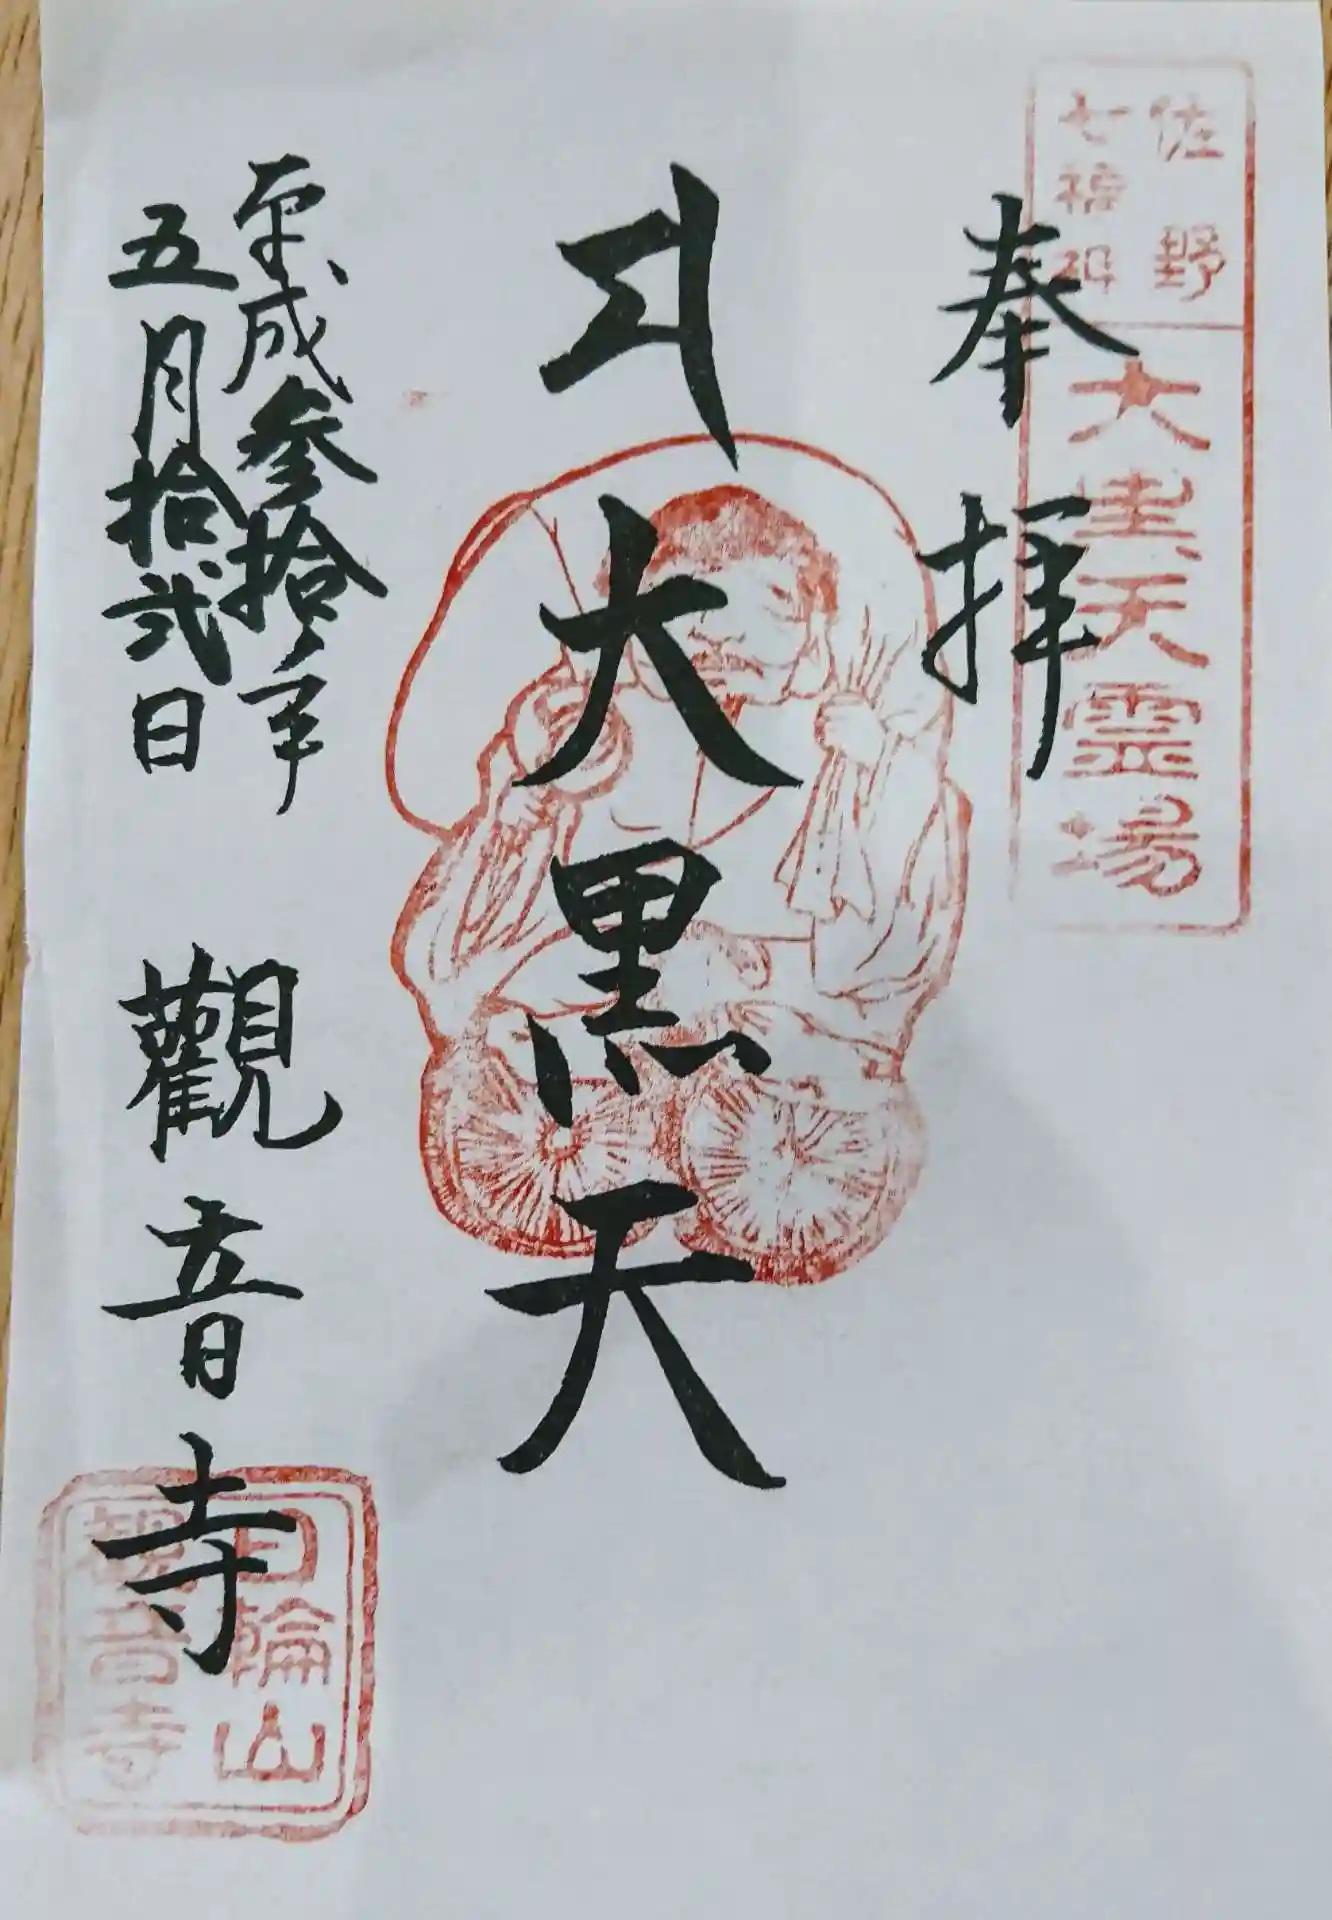 佐野
七福神
大黒天霊場
奉拝
大黒天
平成参拾年
五月拾弐日
觀音寺
日輪山
観音寺